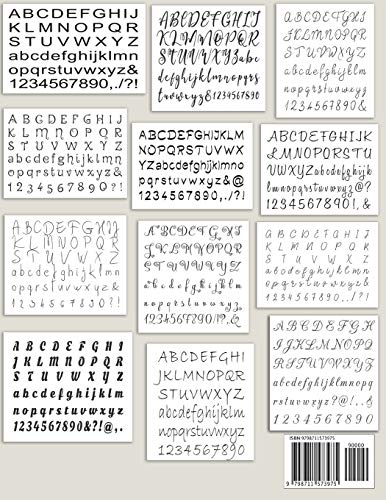 ABCDEFGHIJ
KLMNOPQR
STUVWXYZ
abcdefghijklmn
opqrstuvwxyz&
1234567890,./?!
ABCDEFGHIJ
KLMNOPQR
STUVWXYZabc
defghijklmnopqrs
tuvwxyz&1234567890
ABCDEFGHIJ
KLMNOPQR
STUVWXYZ
abcdefghijklmn
opqrstuvwxyz
1234567890&
ABCDEFGHIJ
KLMNOPQR
STUVWXYZ
abcdefghijklmn
opqrstuvwxyz&
1234567890?!
ABCDEFGHIJKLM
NOPQRSTUVWX
YZabcdefghijklmno
pqrstuvwxyz&@
1234567890,./?!
ABCDEFGHIJK
LMNOPQRST
UVWXYZabcdefghijk
lmnopqrstuvwxyz@?
1234567890!,&.
ABCDEFGHIJ
KLMNOPQR
STUVWXYZ
abcdefghijklmn
opqrstuvwxyz&
1234567890,.?!
ABCDEFGHIJ
KLMNOPQR
STUVWXYZ
abcdefghijklmn
opqrstuvwxyz
1234567890/?!.,&
ABCDEFGHIJ
KLMNOPQR
STUVWXYZ
abcdefghijklmn
opqrstuvwxyz&
1234567890,./?!
ABCDEFGHIJ
KLMNOPQR
STUVWXYZ
abcdefghijklmn
opqrstuvwxyz
1234567890&@,.
ABCDEFGHI
JKLMNOPQR
STUVWXYZ
abcdefghijklm
nopqrstuvwxyz
1234567890
ABCDEFGH
IJKLMNOPQR
STUVWXYZ
abcdefghijklmn
opqrstuvwxyz
1234567890
ISBN 9798711573975
90000
9 798711 573975